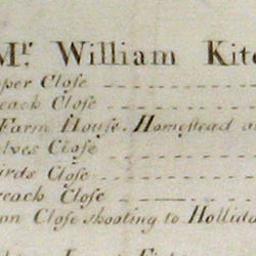 Mr. William Kit
per Close
each Close
Farm House. Homestead a
lves Close
ards Close
reach Close
on Close shooting to Hollida